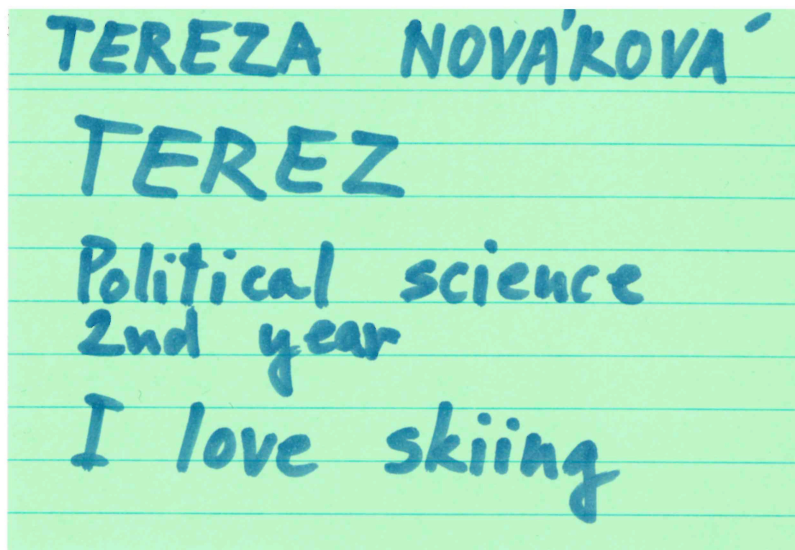 TEREZA NOVÁKOVÁ
TEREZ
Political science
2nd year
I love skiing